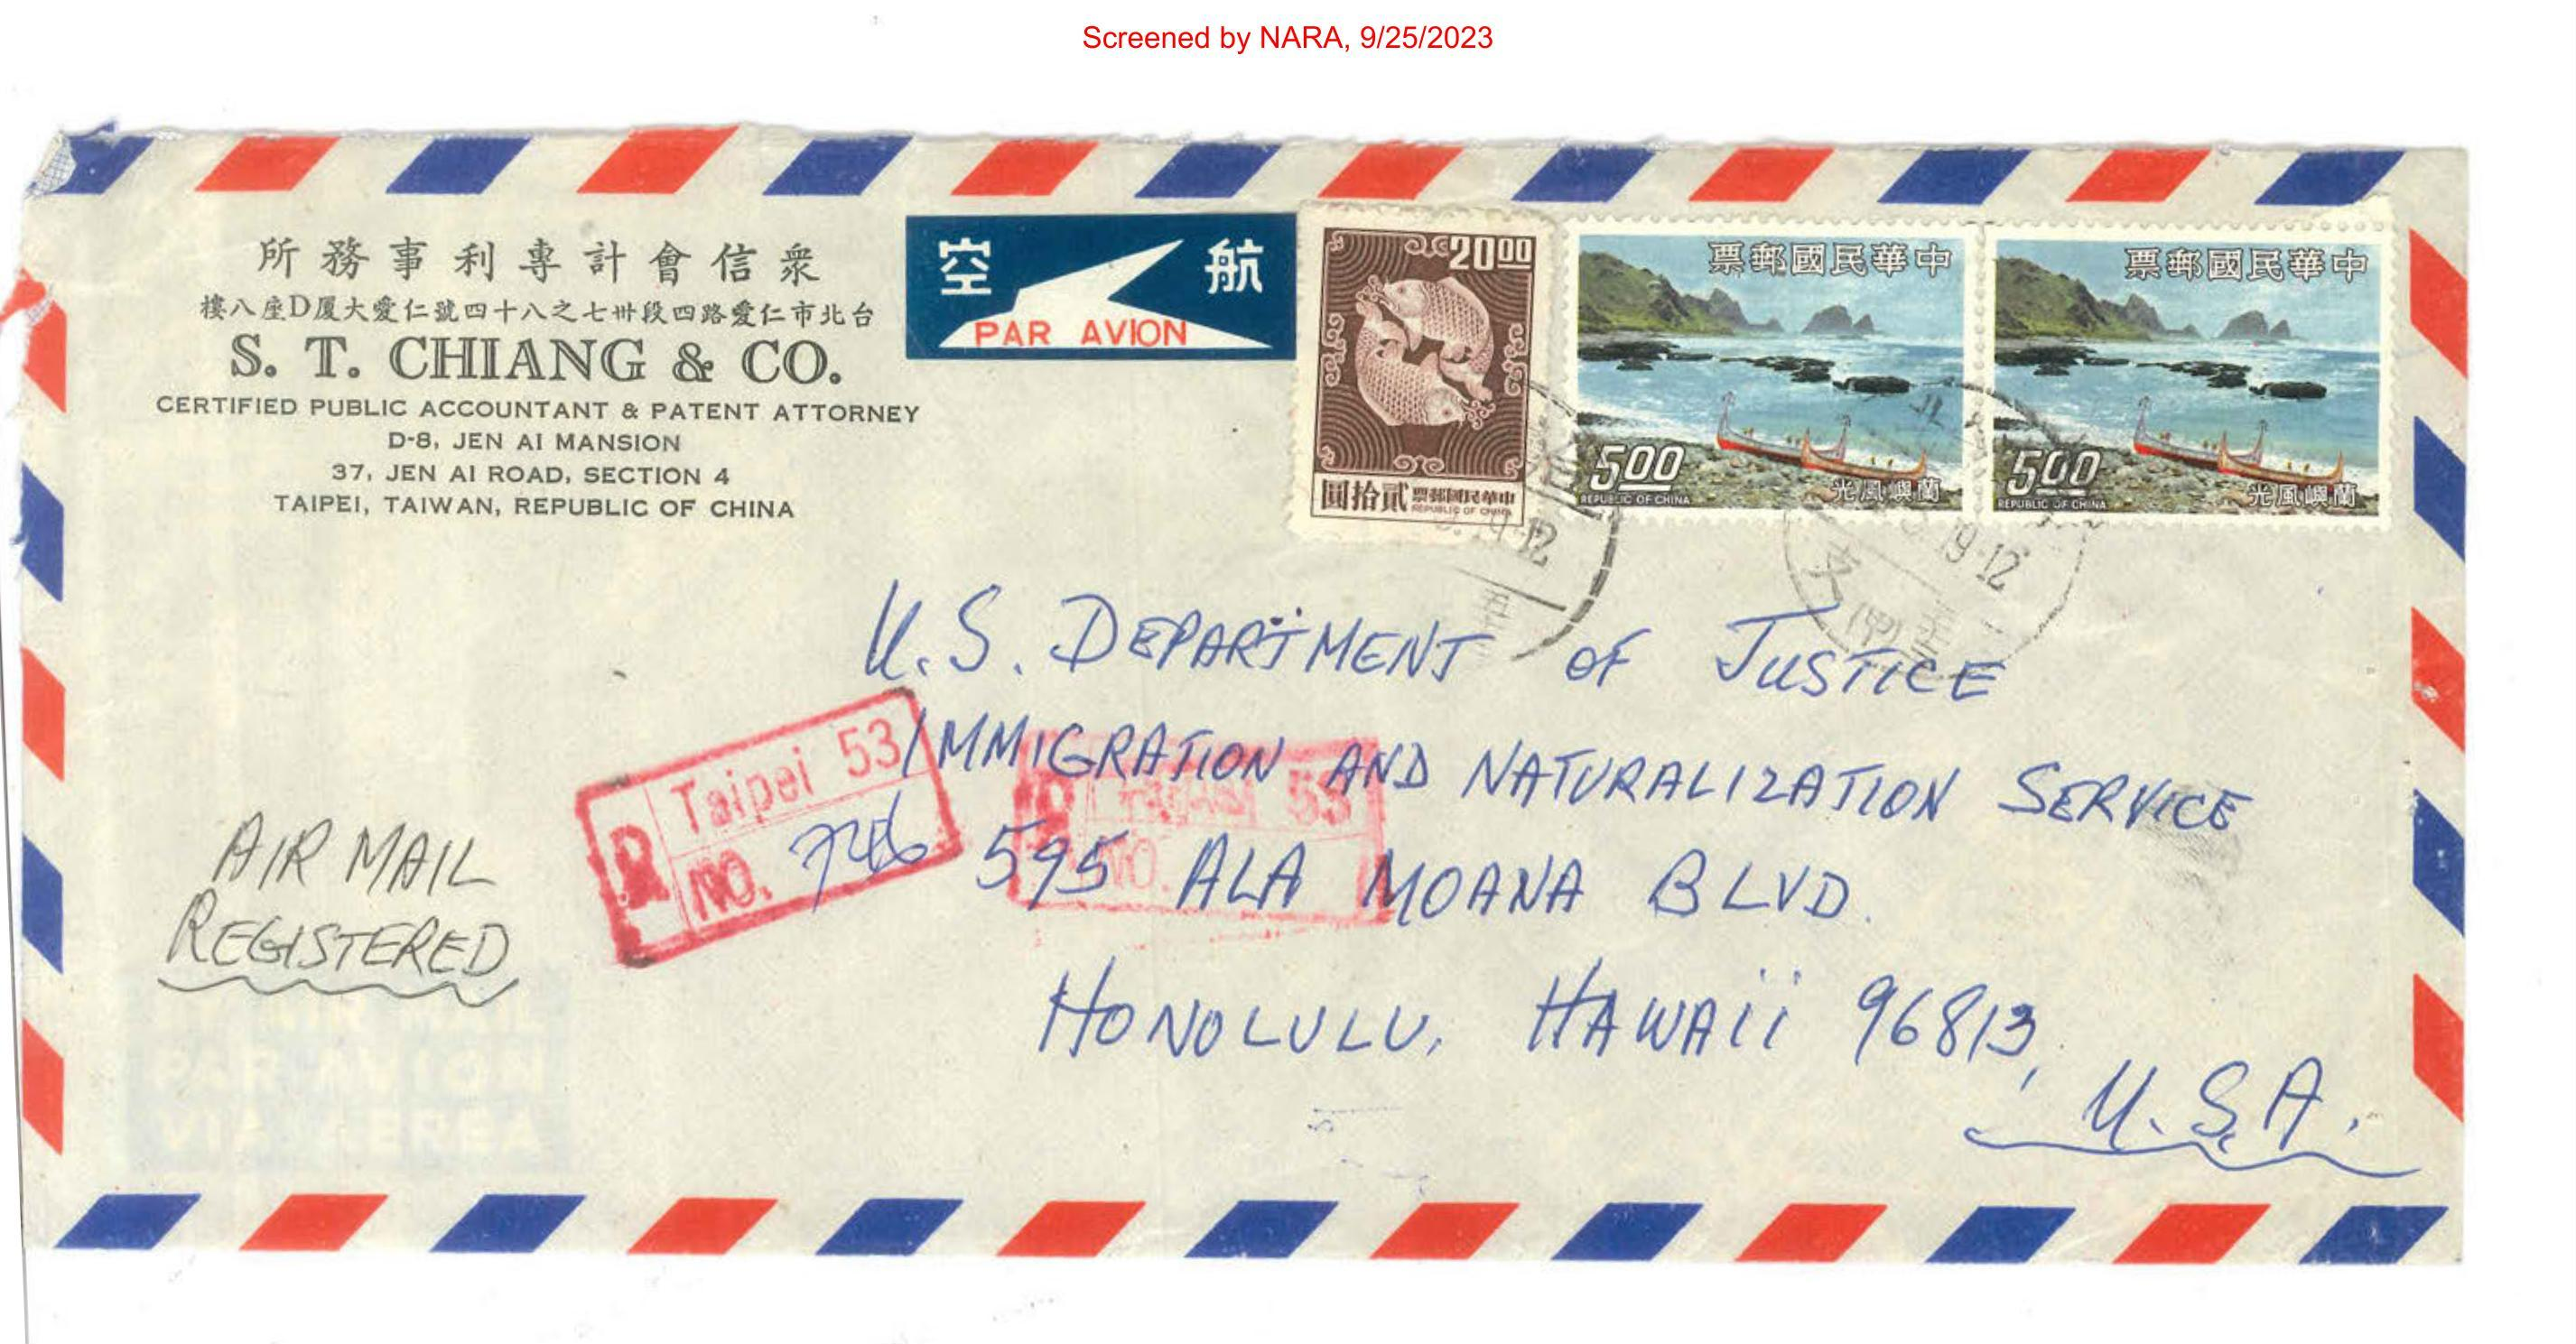 Screened by NARA, 9/25/2023
所務事利專計會信衆
樓八座D厦大愛仁號四十八之七卅段四路愛仁市北台
S. T. CHIANG & CO.
CERTIFIED PUBLIC ACCOUNTANT & PATENT ATTORNEY
D-8, JEN AI MANSION
37, JEN AI ROAD, SECTION 4
TAIPEI, TAIWAN, REPUBLIC OF CHINA
空 航
PAR AVION
20.00
圓拾貳
票郵國民華中
REPUBLIC OF CHINA
票郵國民華中
5.00
REPUBLIC OF CHINA
光風嶼蘭
票郵國民華中
5.00
REPUBLIC OF CHINA
光風嶼蘭
19.12
U.S. DEPARTMENT OF JUSTICE
IMMIGRATION AND NATURALIZATION SERVICE
595 ALA MOANA BLVD.
HONOLULU, HAWAII 96813,
U.S.A.
R Taipei 53
NO. 746
53
NO.
AIR MAIL
REGISTERED
PAR AVION